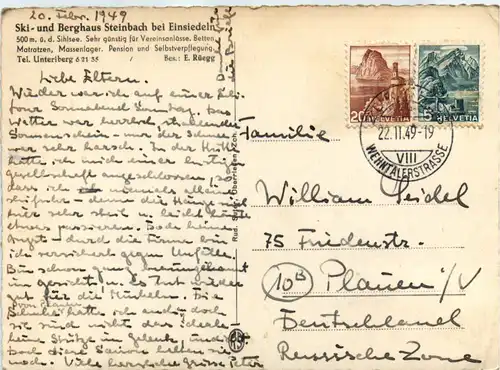 20. Febr. 1949
Ski- und Berghaus Steinbach bei Einsiedeln
500 m. ü. d. Sihlsee. Sehr günstig für Vereinsanlässe. Betten,
Matratzen, Massenlager. Pension und Selbstverpflegung.
Tel. Unteriberg 6 21 35 / Bes.: E. Rüegg
Liebe Eltern.
Wieder war ich auf einer
Tour Sonnabend Sonntag. Das
Wetter war herrlich, strahlender
Sonnenschein - nur der Schnee
war sehr harsch. In der Hütte
hatte ich mich einer lustigen
Gesellschaft angeschlossen, so
dass ich niemals allein
die Hänge sind
hier sehr steil u leicht könnte
etwas passieren. Habe keine
Angst - durch die Firma bin
ich versichert gegen Unfälle.
Bin schon ganz braungebrannt
im Gesicht. Es ist wieder
gut für die Muskeln. Die
Schuhe hatte ich an; doch
sie sind nicht das ideale
keine Stütze im Gelenk, und
doch diese Saison halten sie
noch. Viele herzliche Grüsse Peter
20 HELVETIA
5 HELVETIA
22.II.49-19
VIII
WEHNTALERSTRASSE
Familie
William Seidel
75 Friedenstr.
10B Plauen i/V
Deutschland
Russische Zone